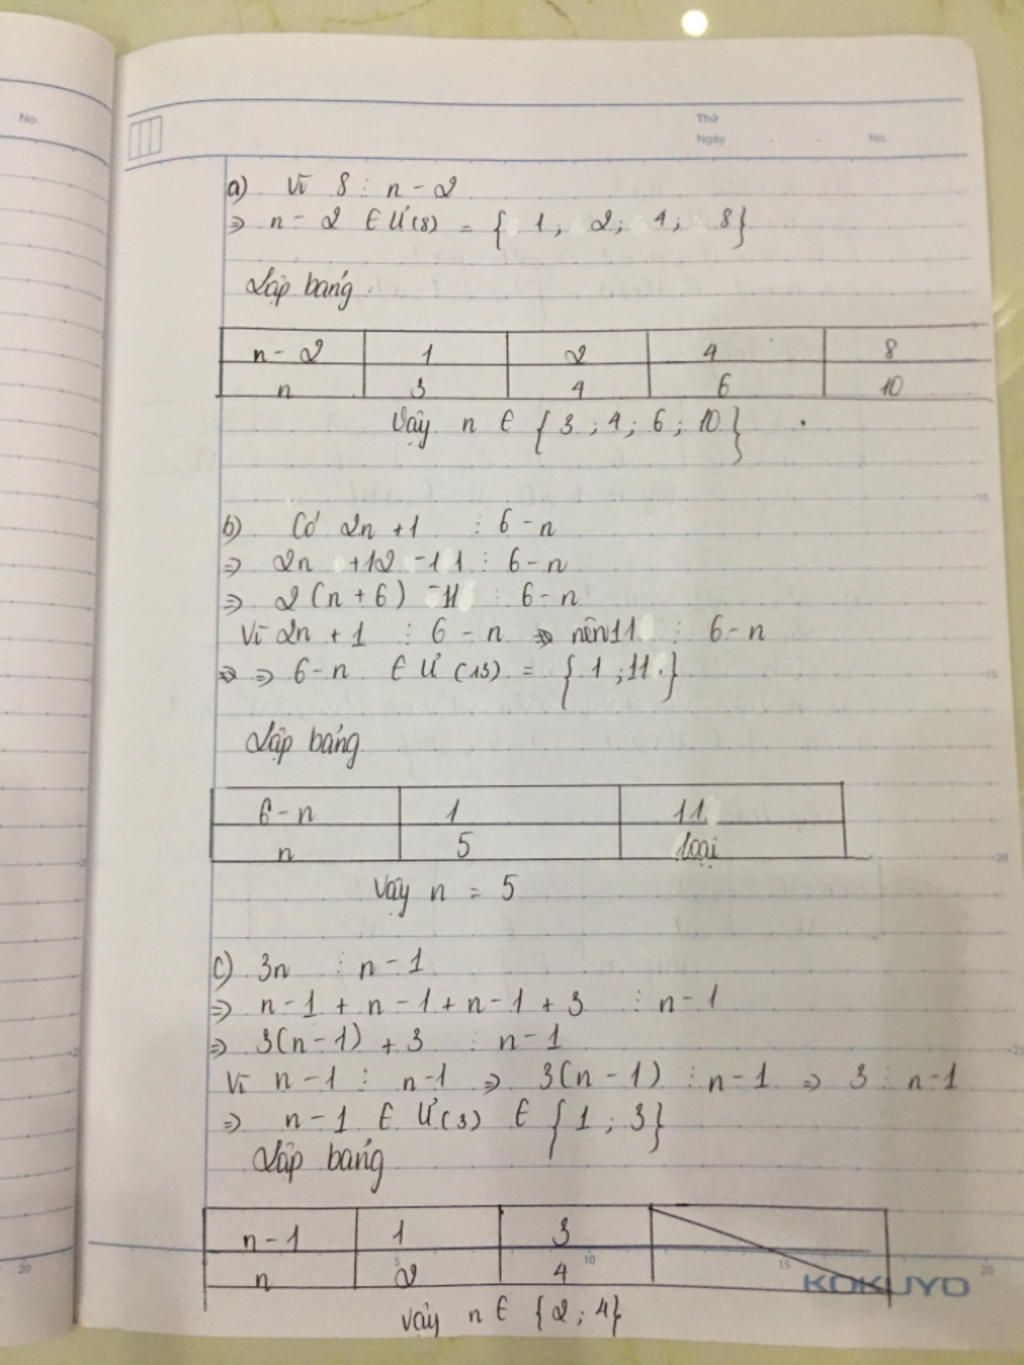 No.
Thứ
Ngày No.
a) Vì 8 ⋮ n - 2
⇒ n - 2 ∈ Ư(8) = { 1; 2; 4; 8}
Lập bảng
n - 2 1 2 4 8
n 3 4 6 10
Vậy n ∈ { 3 ; 4 ; 6 ; 10 }
b) Có 2n + 1 ⋮ 6 - n
⇒ 2n + 12 - 11 ⋮ 6 - n
⇒ 2(n + 6) - 11 ⋮ 6 - n
Vì 2n + 1 ⋮ 6 - n ⇒ nên 11 ⋮ 6 - n
⇒ ⇒ 6 - n ∈ Ư(13) = { 1 ; 11 }
Lập bảng
6 - n 1 11
n 5 loại
Vậy n = 5
c) 3n ⋮ n - 1
⇒ n - 1 + n - 1 + n - 1 + 3 ⋮ n - 1
⇒ 3(n - 1) + 3 ⋮ n - 1
Vì n - 1 ⋮ n - 1 ⇒ 3(n - 1) ⋮ n - 1 ⇒ 3 ⋮ n - 1
⇒ n - 1 ∈ Ư(3) ∈ { 1 ; 3}
Lập bảng
n - 1 1 3
n 2 4
5 10 15 20
KOKUYO
Vậy n ∈ {2 ; 4}